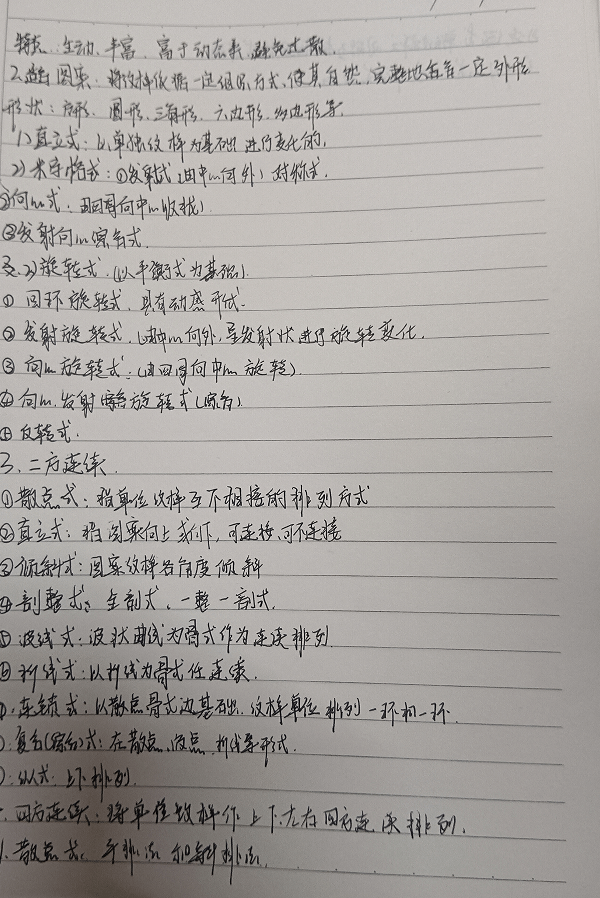 特点：生动、丰富、富于动态美，避免太散.
2.适合图案：将纹样依据一定组织方式，使其自然、完整地适合一定外形
形状：方形、圆形、三角形、六边形、多边形等.
1)直立式：以单独纹样为基础进行变化的,
2)米字格式：①发射式(由中心向外)对称式.
②向心式：由四周向中心收拢)
③发射向心综合式.
3)旋转式.(以平衡式为基础)
① 圆环旋转式，具有动感形式.
② 发射旋转式，(由中心向外,呈发射状进行旋转变化.
③ 向心旋转式：(由四周向中心旋转)
④ 向心.发射结合旋转式(综合)
反转式.
3.二方连续.
①散点式：指单位纹样互不相接的排列方式
②直立式：指图案向上或向下，可连接,可不连接
③倾斜式：图案纹样各角度倾斜
④剖整式：全剖式、一整一剖式.
⑤波线式：波状曲线为骨式作为连续排列.
⑥折线式：以折线为骨式作连续.
连锁式：以散点骨式为基础，纹样单位排列一环扣一环.
复合(综合)式：在散点、波点、折线等形式.
纵式：上下排列.
四方连续：将单位纹样作上下左右四方连续排列.
散点式、平排法和斜排法.